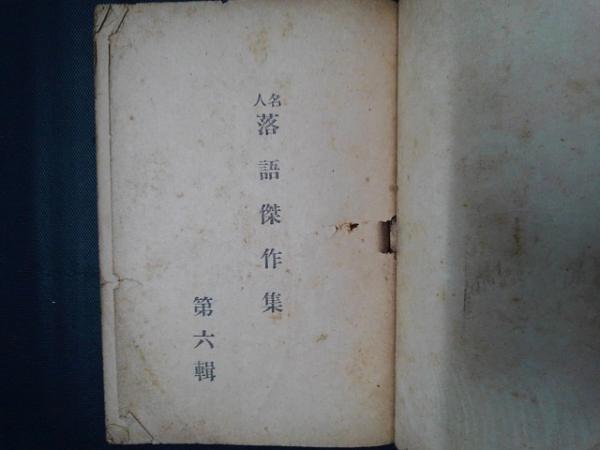 名人
落語傑作集
第六輯